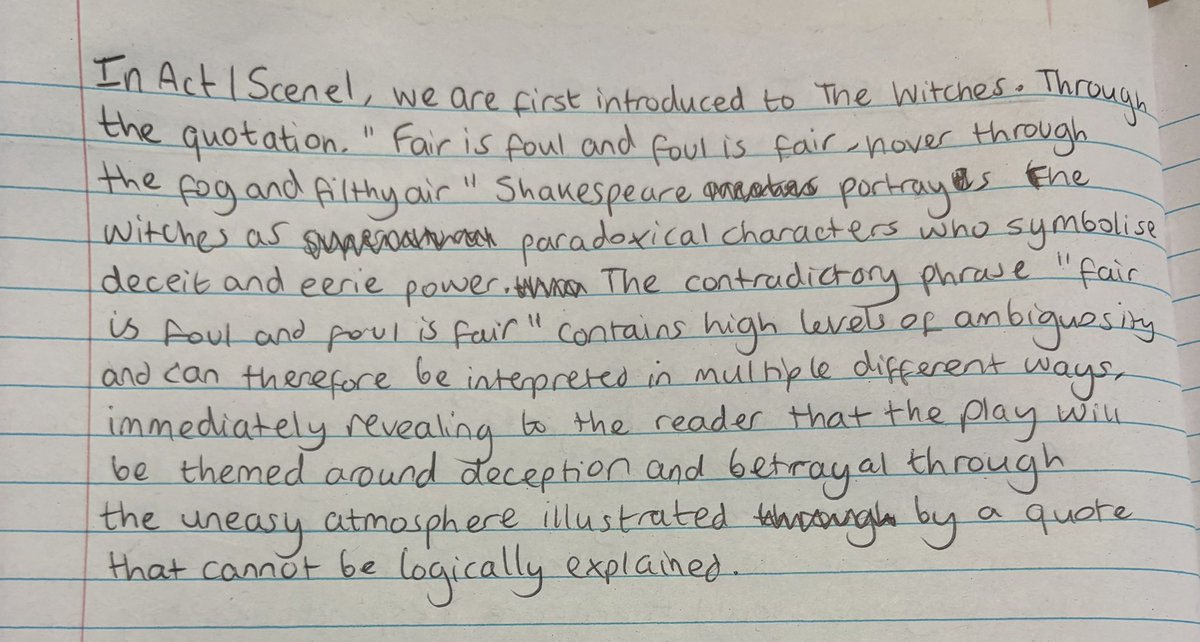 In Act 1 Scene 1, we are first introduced to The Witches. Through
the quotation. "Fair is foul and foul is fair, hover through
the fog and filthy air" Shakespeare portrays the
witches as paradoxical characters who symbolise
deceit and eerie power. The contradictory phrase "fair
is foul and foul is fair" contains high levels of ambiguosity
and can therefore be interpreted in multiple different ways,
immediately revealing to the reader that the play will
be themed around deception and betrayal through
the uneasy atmosphere illustrated by a quote
that cannot be logically explained.